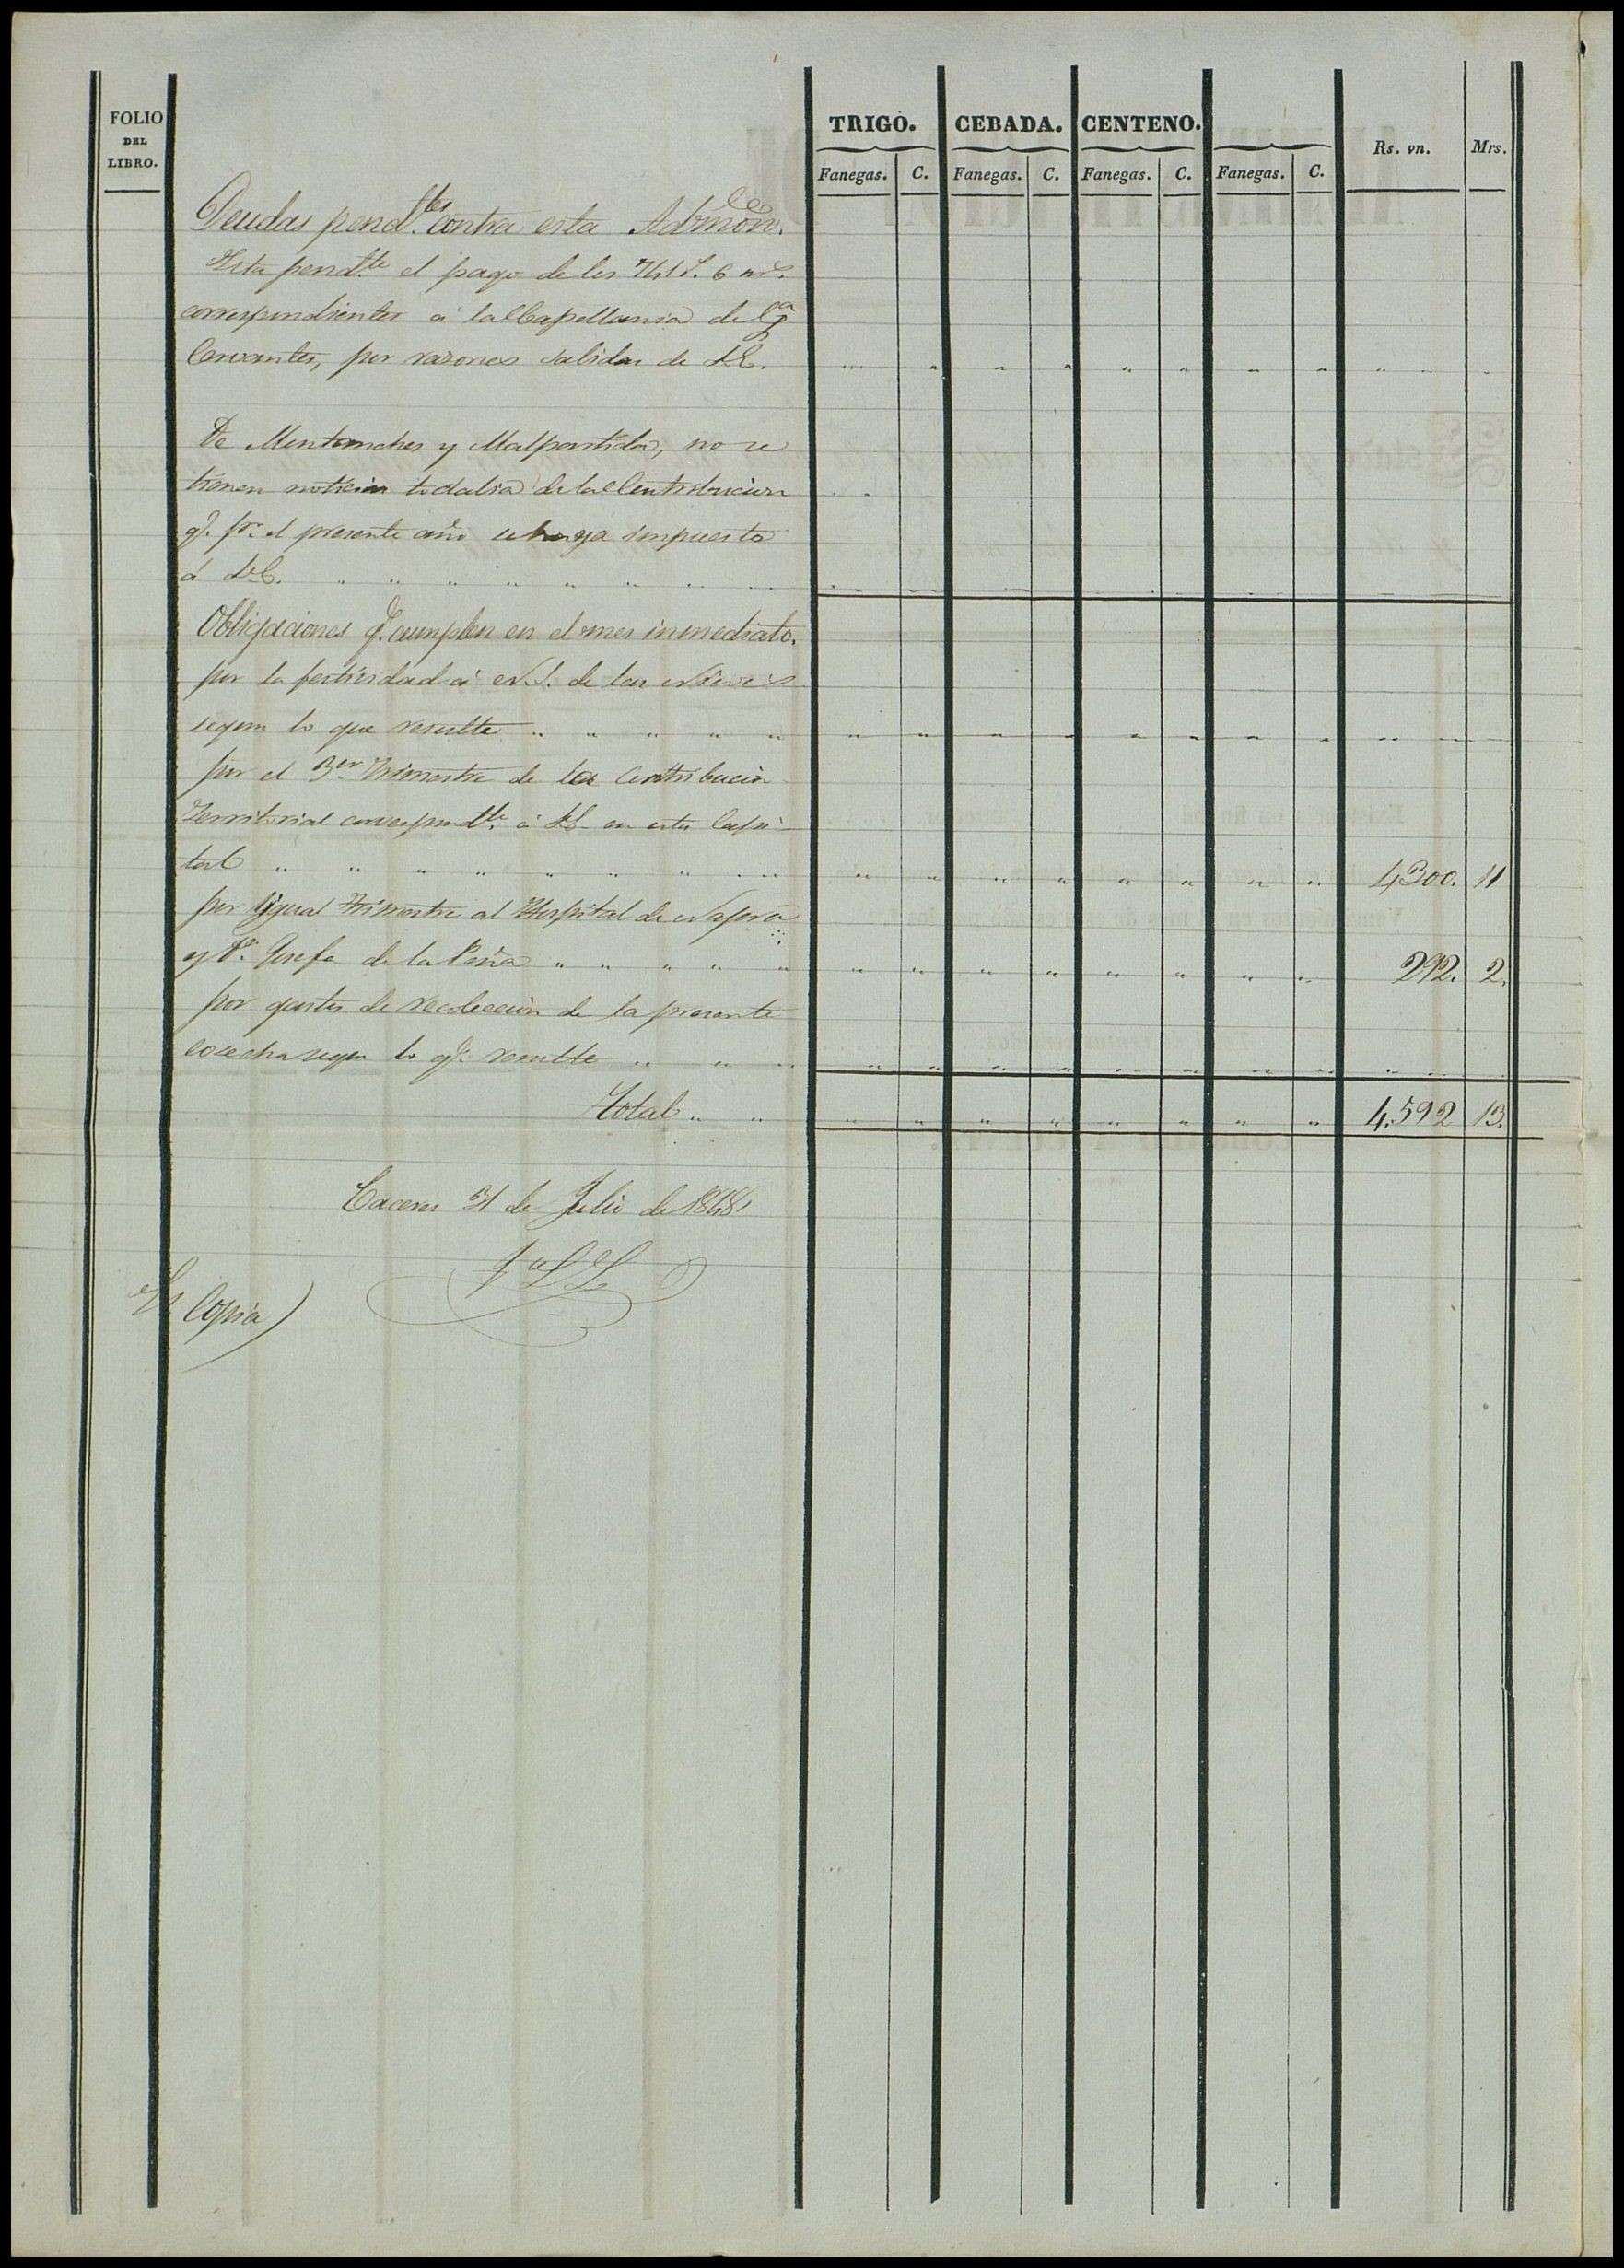 FOLIO
DEL
LIBRO.
TRIGO. CEBADA. CENTENO.
Fanegas. C. Fanegas. C. Fanegas. C. Fanegas. C. Rs. vn. Mrs.
Deudas pend.tes contra esta Admon.
Esta pend.te el pago de los 6 ms.
correspondientes á la Capellania de
Cervantes, por razones sabidas de S.E.
De Montanches y Malpartida, no se
tienen noticias todabia de la Contribucion
q.e p.r el presente año se haya impuesto
á S.E. " " " " " " " "
Obligaciones q.e cumplen en el mes inmediato.
por la festividad á N.S. de las Nieves
segun lo que resulte " " " " "
por el 3.er Trimestre de la Contribucion
Territorial correspond.te á S.E. en esta Capi-
tal " " " " " " " " " 4300. 11
por ygual trimestre al Hospital de
y D.a Josefa de la Peña " " " " " 292. 2.
por gastos de recoleccion de la presente
cosecha segun lo q.e resulte " " "
Total " " 4.592 13.
Caceres 31 de Julio de 1848,
Es Copia